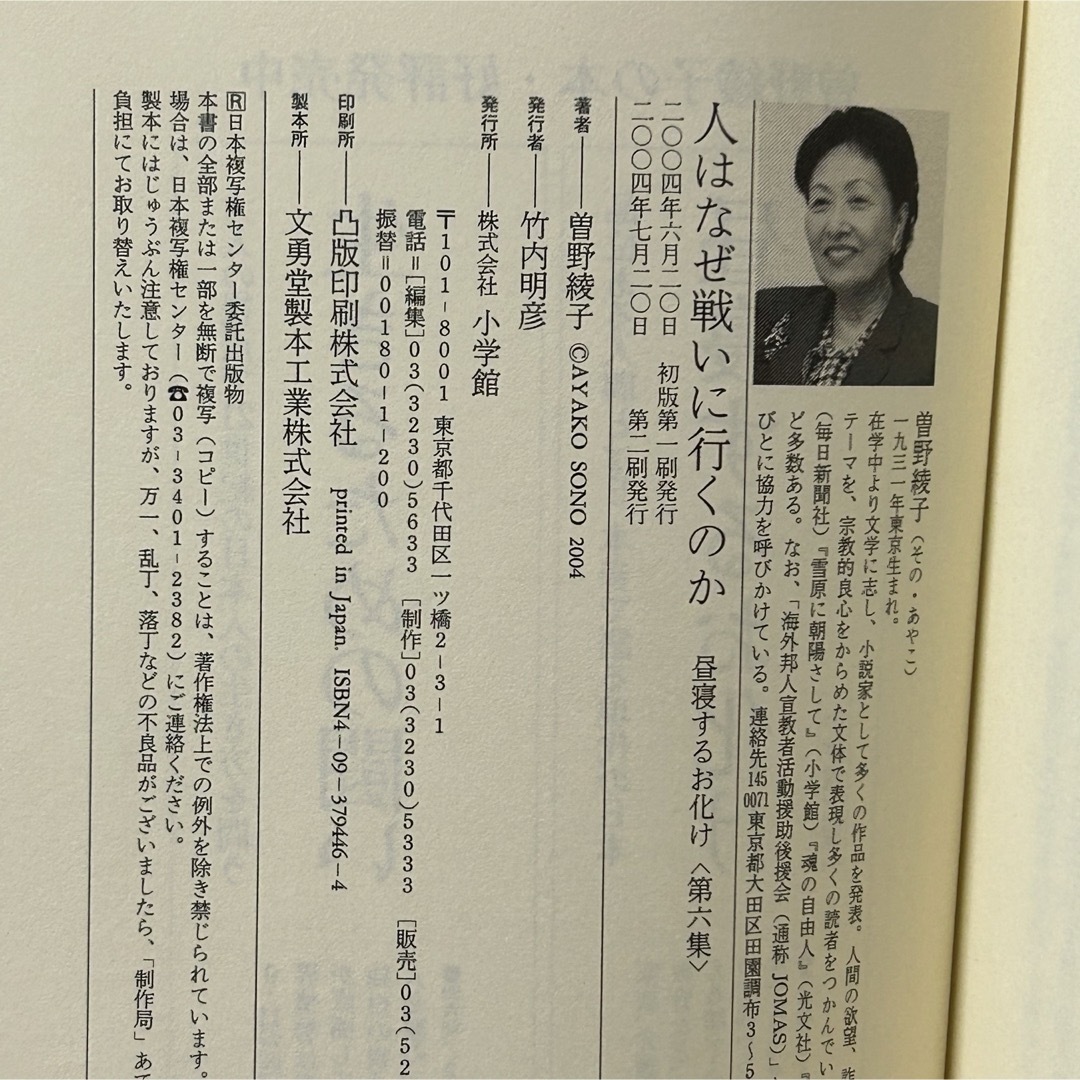 曽野綾子（その・あやこ）
一九三一年東京生まれ。
在学中より文学に志し、小説家として多くの作品を発表。人間の欲望、
テーマを、宗教的良心をからめた文体で表現し多くの読者をつかんでい
（毎日新聞社）『雪原に朝陽さして』（小学館）『魂の自由人』（光文社）『
ど多数ある。なお、「海外邦人宣教者活動援助後援会（通称JOMAS）」
びとに協力を呼びかけている。連絡先145 0071東京都大田区田園調布3〜5
人はなぜ戦いに行くのか　昼寝するお化け〈第六集〉
二〇〇四年六月二〇日　初版第一刷発行
二〇〇四年七月二〇日　第二刷発行
著者――曽野綾子 ©AYAKO SONO 2004
発行者――竹内明彦
発行所――株式会社 小学館
〒101-8001 東京都千代田区一ツ橋2-3-1
電話=［編集］03(3230)5633 ［制作］03(3230)5333 ［販売］03(52
振替=00180-1-200
印刷所――凸版印刷株式会社 printed in Japan. ISBN4-09-379446-4
製本所――文勇堂製本工業株式会社
Ⓡ日本複写権センター委託出版物
本書の全部または一部を無断で複写（コピー）することは、著作権法上での例外を除き禁じられています。
場合は、日本複写権センター（☎03-3401-2382）にご連絡ください。
製本にはじゅうぶん注意しておりますが、万一、乱丁、落丁などの不良品がございましたら、「制作局」あて
負担にてお取り替えいたします。